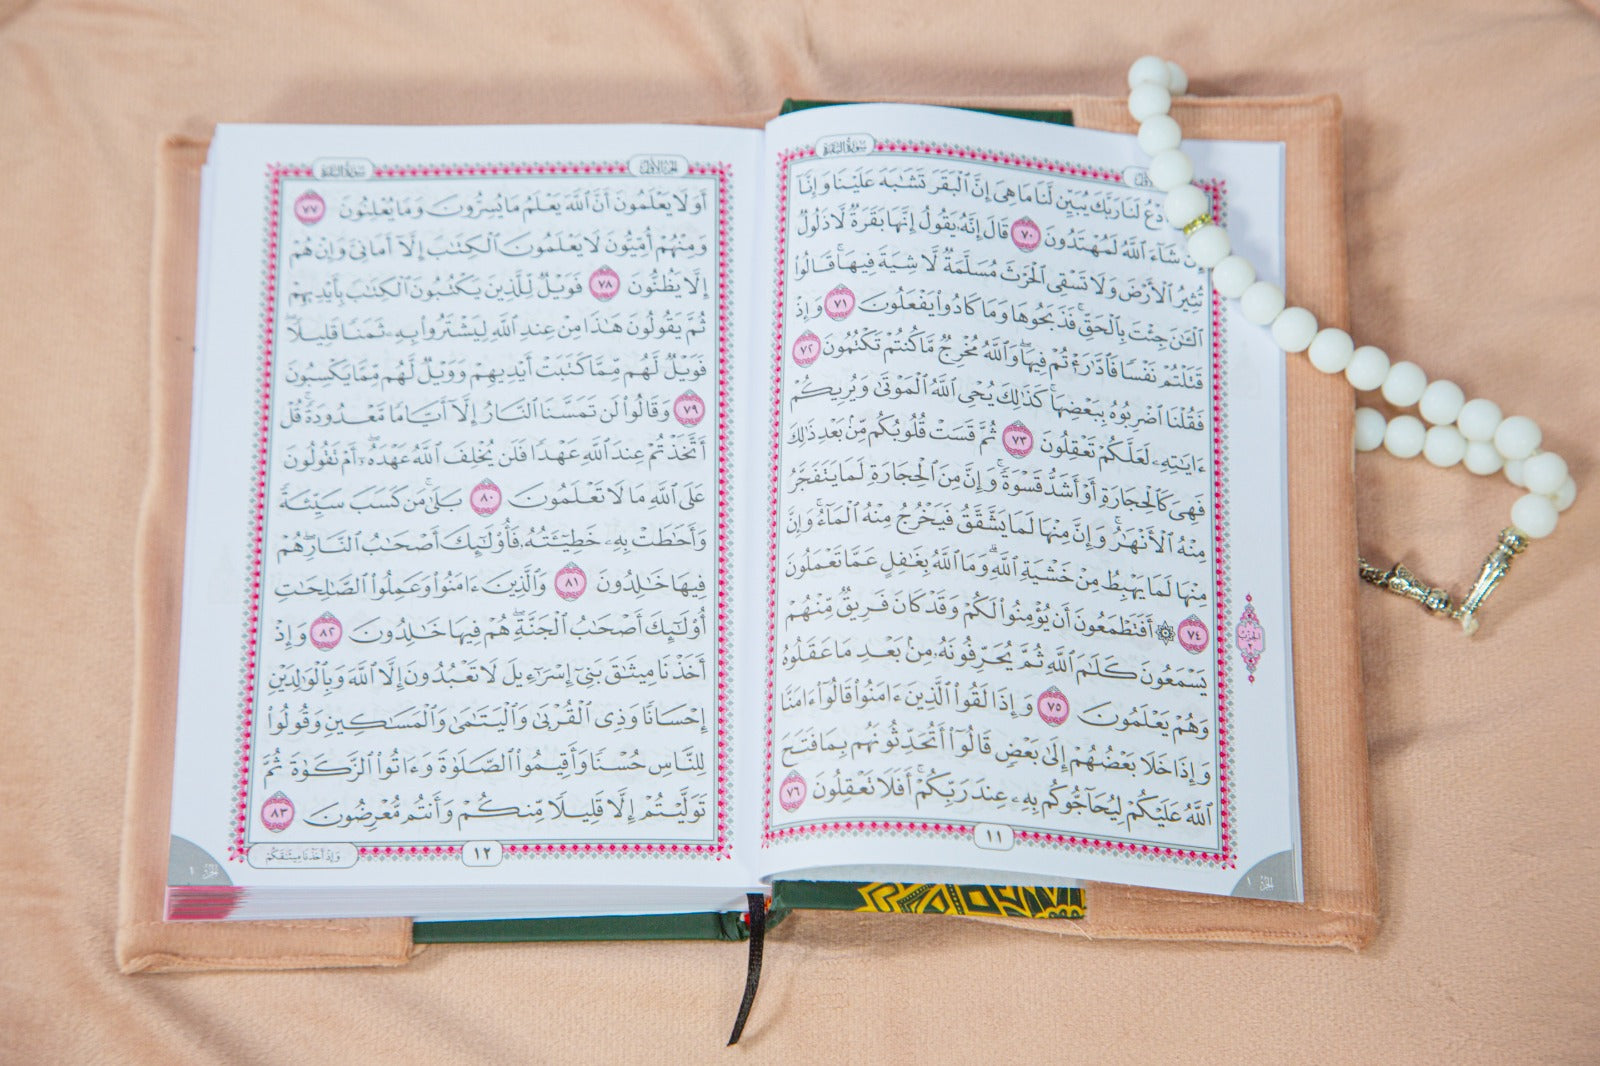 سُورَةُ البَقَرَةِ
الجُزْءُ الأَوَّلُ
ٱدْعُ لَنَا رَبَّكَ يُبَيِّن لَّنَا مَا هِىَ إِنَّ ٱلْبَقَرَ تَشَٰبَهَ عَلَيْنَا وَإِنَّآ
إِن شَآءَ ٱللَّهُ لَمُهْتَدُونَ ٧٠ قَالَ إِنَّهُۥ يَقُولُ إِنَّهَا بَقَرَةٌ لَّا ذَلُولٌ
تُثِيرُ ٱلْأَرْضَ وَلَا تَسْقِى ٱلْحَرْثَ مُسَلَّمَةٌ لَّا شِيَةَ فِيهَا ۚ قَالُوا۟
ٱلْـَٰٔنَ جِئْتَ بِٱلْحَقِّ ۚ فَذَبَحُوهَا وَمَا كَادُوا۟ يَفْعَلُونَ ٧١ وَإِذْ
قَتَلْتُمْ نَفْسًا فَٱدَّٰرَْٰٔتُمْ فِيهَا ۖ وَٱللَّهُ مُخْرِجٌ مَّا كُنتُمْ تَكْتُمُونَ ٧٢
فَقُلْنَا ٱضْرِبُوهُ بِبَعْضِهَا ۚ كَذَٰلِكَ يُحْىِ ٱللَّهُ ٱلْمَوْتَىٰ وَيُرِيكُمْ
ءَايَٰتِهِۦ لَعَلَّكُمْ تَعْقِلُونَ ٧٣ ثُمَّ قَسَتْ قُلُوبُكُم مِّنۢ بَعْدِ ذَٰلِكَ
فَهِىَ كَٱلْحِجَارَةِ أَوْ أَشَدُّ قَسْوَةً ۚ وَإِنَّ مِنَ ٱلْحِجَارَةِ لَمَا يَتَفَجَّرُ
مِنْهُ ٱلْأَنْهَٰرُ ۚ وَإِنَّ مِنْهَا لَمَا يَشَّقَّقُ فَيَخْرُجُ مِنْهُ ٱلْمَآءُ ۚ وَإِنَّ
مِنْهَا لَمَا يَهْبِطُ مِنْ خَشْيَةِ ٱللَّهِ ۗ وَمَا ٱللَّهُ بِغَٰفِلٍ عَمَّا تَعْمَلُونَ
٧٤ ۞ أَفَتَطْمَعُونَ أَن يُؤْمِنُوا۟ لَكُمْ وَقَدْ كَانَ فَرِيقٌ مِّنْهُمْ
يَسْمَعُونَ كَلَٰمَ ٱللَّهِ ثُمَّ يُحَرِّفُونَهُۥ مِنۢ بَعْدِ مَا عَقَلُوهُ
وَهُمْ يَعْلَمُونَ ٧٥ وَإِذَا لَقُوا۟ ٱلَّذِينَ ءَامَنُوا۟ قَالُوٓا۟ ءَامَنَّا
وَإِذَا خَلَا بَعْضُهُمْ إِلَىٰ بَعْضٍ قَالُوٓا۟ أَتُحَدِّثُونَهُم بِمَا فَتَحَ
ٱللَّهُ عَلَيْكُمْ لِيُحَآجُّوكُم بِهِۦ عِندَ رَبِّكُمْ ۚ أَفَلَا تَعْقِلُونَ ٧٦
الحزب ٢
١١
الجزء ١
الجُزْءُ الأَوَّلُ
سُورَةُ البَقَرَةِ
أَوَلَا يَعْلَمُونَ أَنَّ ٱللَّهَ يَعْلَمُ مَا يُسِرُّونَ وَمَا يُعْلِنُونَ ٧٧
وَمِنْهُمْ أُمِّيُّونَ لَا يَعْلَمُونَ ٱلْكِتَٰبَ إِلَّآ أَمَانِىَّ وَإِنْ هُمْ
إِلَّا يَظُنُّونَ ٧٨ فَوَيْلٌ لِّلَّذِينَ يَكْتُبُونَ ٱلْكِتَٰبَ بِأَيْدِيهِمْ
ثُمَّ يَقُولُونَ هَٰذَا مِنْ عِندِ ٱللَّهِ لِيَشْتَرُوا۟ بِهِۦ ثَمَنًا قَلِيلًا ۖ
فَوَيْلٌ لَّهُم مِّمَّا كَتَبَتْ أَيْدِيهِمْ وَوَيْلٌ لَّهُم مِّمَّا يَكْسِبُونَ
٧٩ وَقَالُوا۟ لَن تَمَسَّنَا ٱلنَّارُ إِلَّآ أَيَّامًا مَّعْدُودَةً ۚ قُلْ
أَتَّخَذْتُمْ عِندَ ٱللَّهِ عَهْدًا فَلَن يُخْلِفَ ٱللَّهُ عَهْدَهُۥٓ ۖ أَمْ تَقُولُونَ
عَلَى ٱللَّهِ مَا لَا تَعْلَمُونَ ٨٠ بَلَىٰ ۚ مَن كَسَبَ سَيِّئَةً
وَأَحَٰطَتْ بِهِۦ خَطِيٓـَٔتُهُۥ فَأُو۟لَٰٓئِكَ أَصْحَٰبُ ٱلنَّارِ ۖ هُمْ
فِيهَا خَٰلِدُونَ ٨١ وَٱلَّذِينَ ءَامَنُوا۟ وَعَمِلُوا۟ ٱلصَّٰلِحَٰتِ
أُو۟لَٰٓئِكَ أَصْحَٰبُ ٱلْجَنَّةِ ۖ هُمْ فِيهَا خَٰلِدُونَ ٨٢ وَإِذْ
أَخَذْنَا مِيثَٰقَ بَنِىٓ إِسْرَٰٓءِيلَ لَا تَعْبُدُونَ إِلَّا ٱللَّهَ وَبِٱلْوَٰلِدَيْنِ
إِحْسَانًا وَذِى ٱلْقُرْبَىٰ وَٱلْيَتَٰمَىٰ وَٱلْمَسَٰكِينِ وَقُولُوا۟
لِلنَّاسِ حُسْنًا وَأَقِيمُوا۟ ٱلصَّلَوٰةَ وَءَاتُوا۟ ٱلزَّكَوٰةَ ثُمَّ
تَوَلَّيْتُمْ إِلَّا قَلِيلًا مِّنكُمْ وَأَنتُم مُّعْرِضُونَ ٨٣
١٢
وَإِذْ أَخَذْنَا مِيثَٰقَكُمْ
الجزء ١